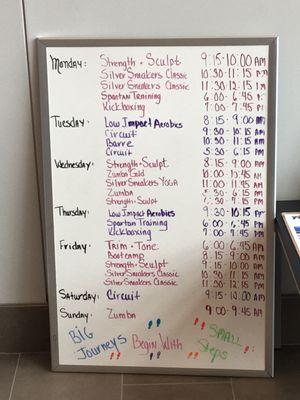 Monday: Strength + Sculpt 9:15-10:00 AM
Silver Sneakers Classic 10:30-11:15
Silver Sneakers Classic 11:30-12:15
Spartan Training 6:00-6:45
Kickboxing 7:00-7:45 PM
Tuesday: Low Impact Aerobics 8:15-9:00
Circuit 9:30-10:15
Barre 10:30-11:15
Circuit 5:30-6:15 PM
Wednesday: Strength + Sculpt 8:15-9:00 AM
Zumba Gold 9:15-10:00 AM
Silver Sneakers YOGA 11:00-11:45 AM
Zumba 5:30-6:15
Strength + Sculpt 6:30-7:15 PM
Thursday: Low Impact Aerobics 9:30-10:15
Spartan Training 6:00-6:45
Kickboxing 7:00-7:45 PM
Friday: Trim + Tone 6:00-6:45 AM
Bootcamp 8:15-9:00
Strength + Sculpt 9:15-10:00
Silver Sneakers Classic 10:30-11:15
Silver Sneakers Classic 11:30-12:15
Saturday: Circuit 9:15-10:00
Sunday: Zumba 9:00-9:45 AM
BIG Journeys Begin With SMALL Steps